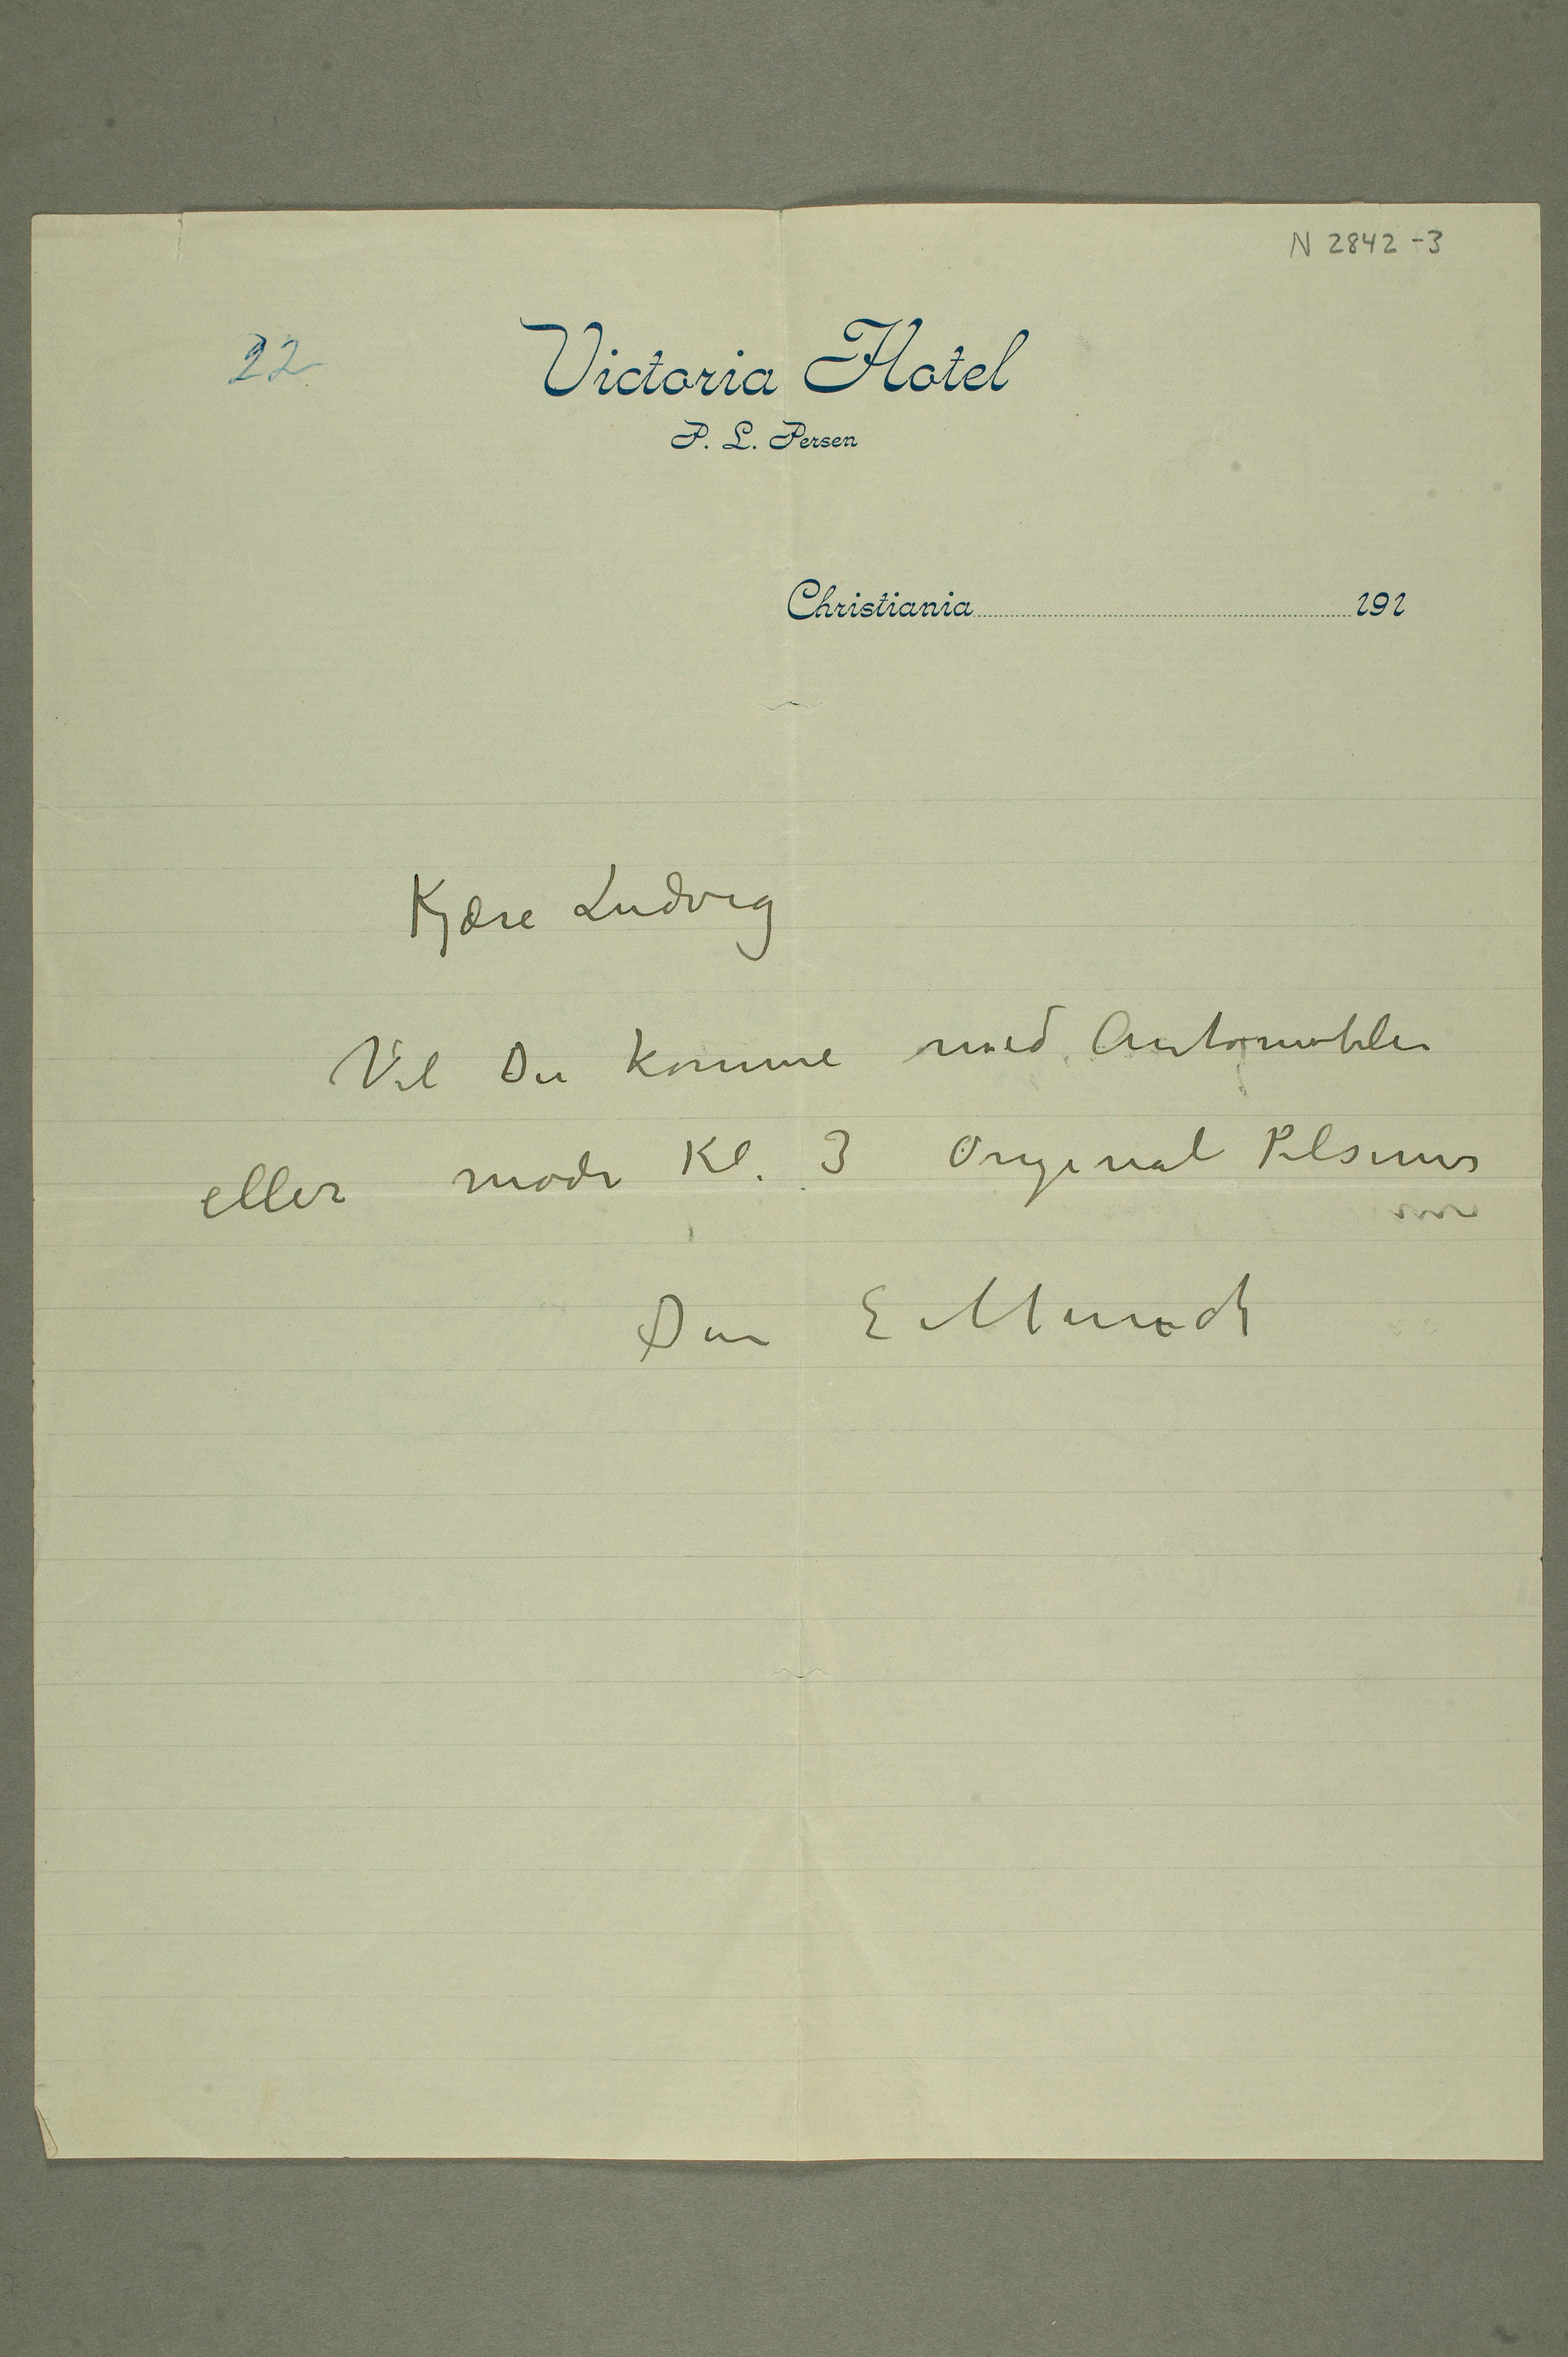 N 2842-3
22
Victoria Hotel
P. L. Persen
Christiania 191
Kjære Ludvig
Vil Du komme med Automobilen
eller møde Kl. 3 Original Pilsener
Din E Munch